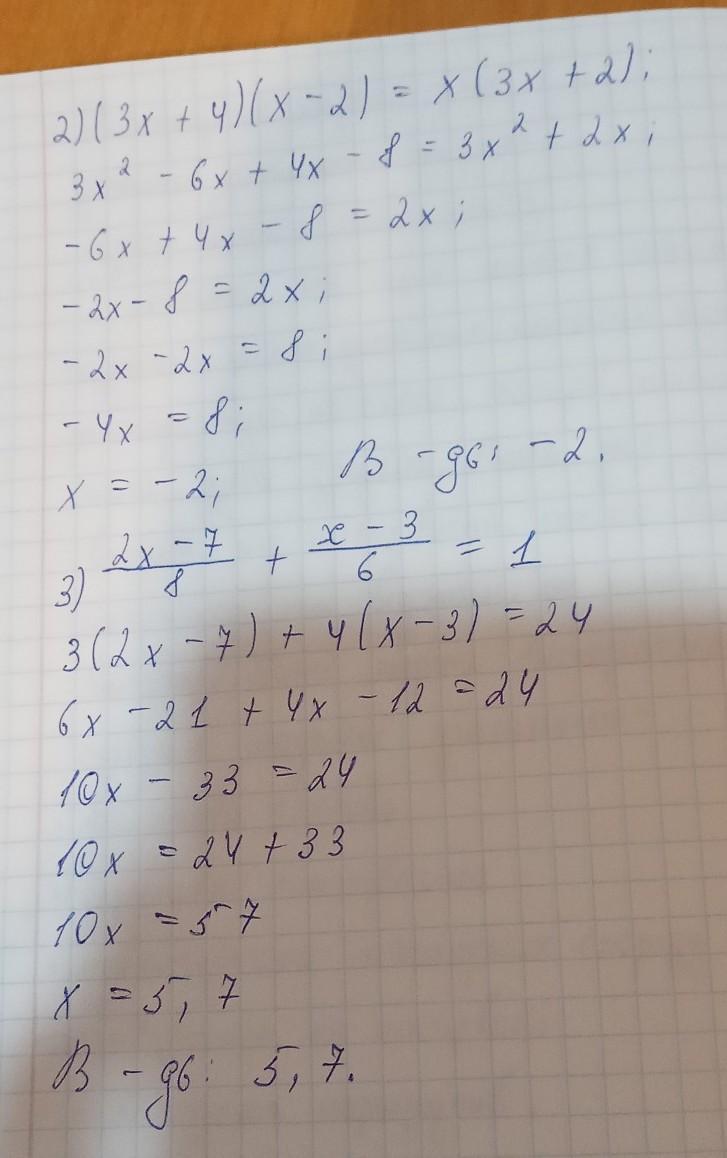 2) (3x + 4)(x - 2) = x(3x + 2);
3x² - 6x + 4x - 8 = 3x² + 2x;
-6x + 4x - 8 = 2x;
-2x - 8 = 2x;
-2x - 2x = 8;
-4x = 8;
x = -2; В-дь: -2.
3) (2x - 7)/8 + (x - 3)/6 = 1
3(2x - 7) + 4(x - 3) = 24
6x - 21 + 4x - 12 = 24
10x - 33 = 24
10x = 24 + 33
10x = 57
x = 5,7
В-дь: 5,7.